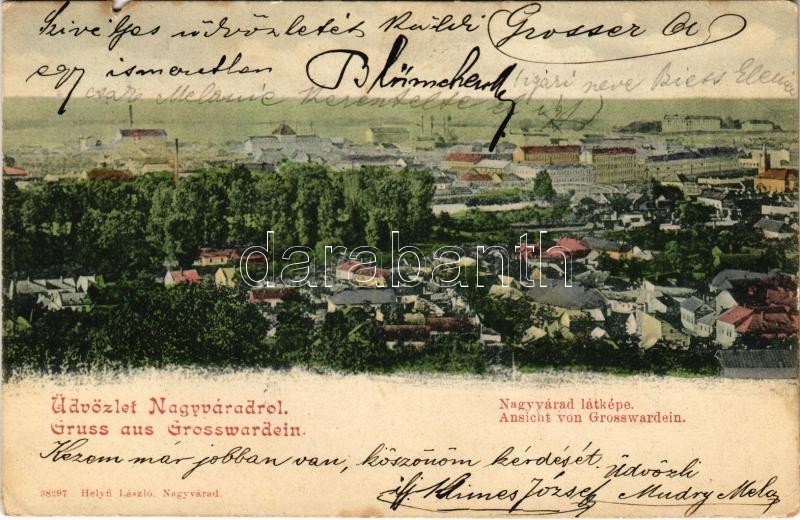 Szivélyes üdvözletét küldi Grosser
egy ismeretlen Blümchen
Melanie igazi neve
darabanth
Üdvözlet Nagyváradról.
Gruss aus Grosswardein.
Nagyvárad látképe.
Ansicht von Grosswardein.
Kezem már jobban van, köszönöm kérdését. Üdvözli
ifj Klimes József Mudry Mela
38297 Helyfi László, Nagyvárad.